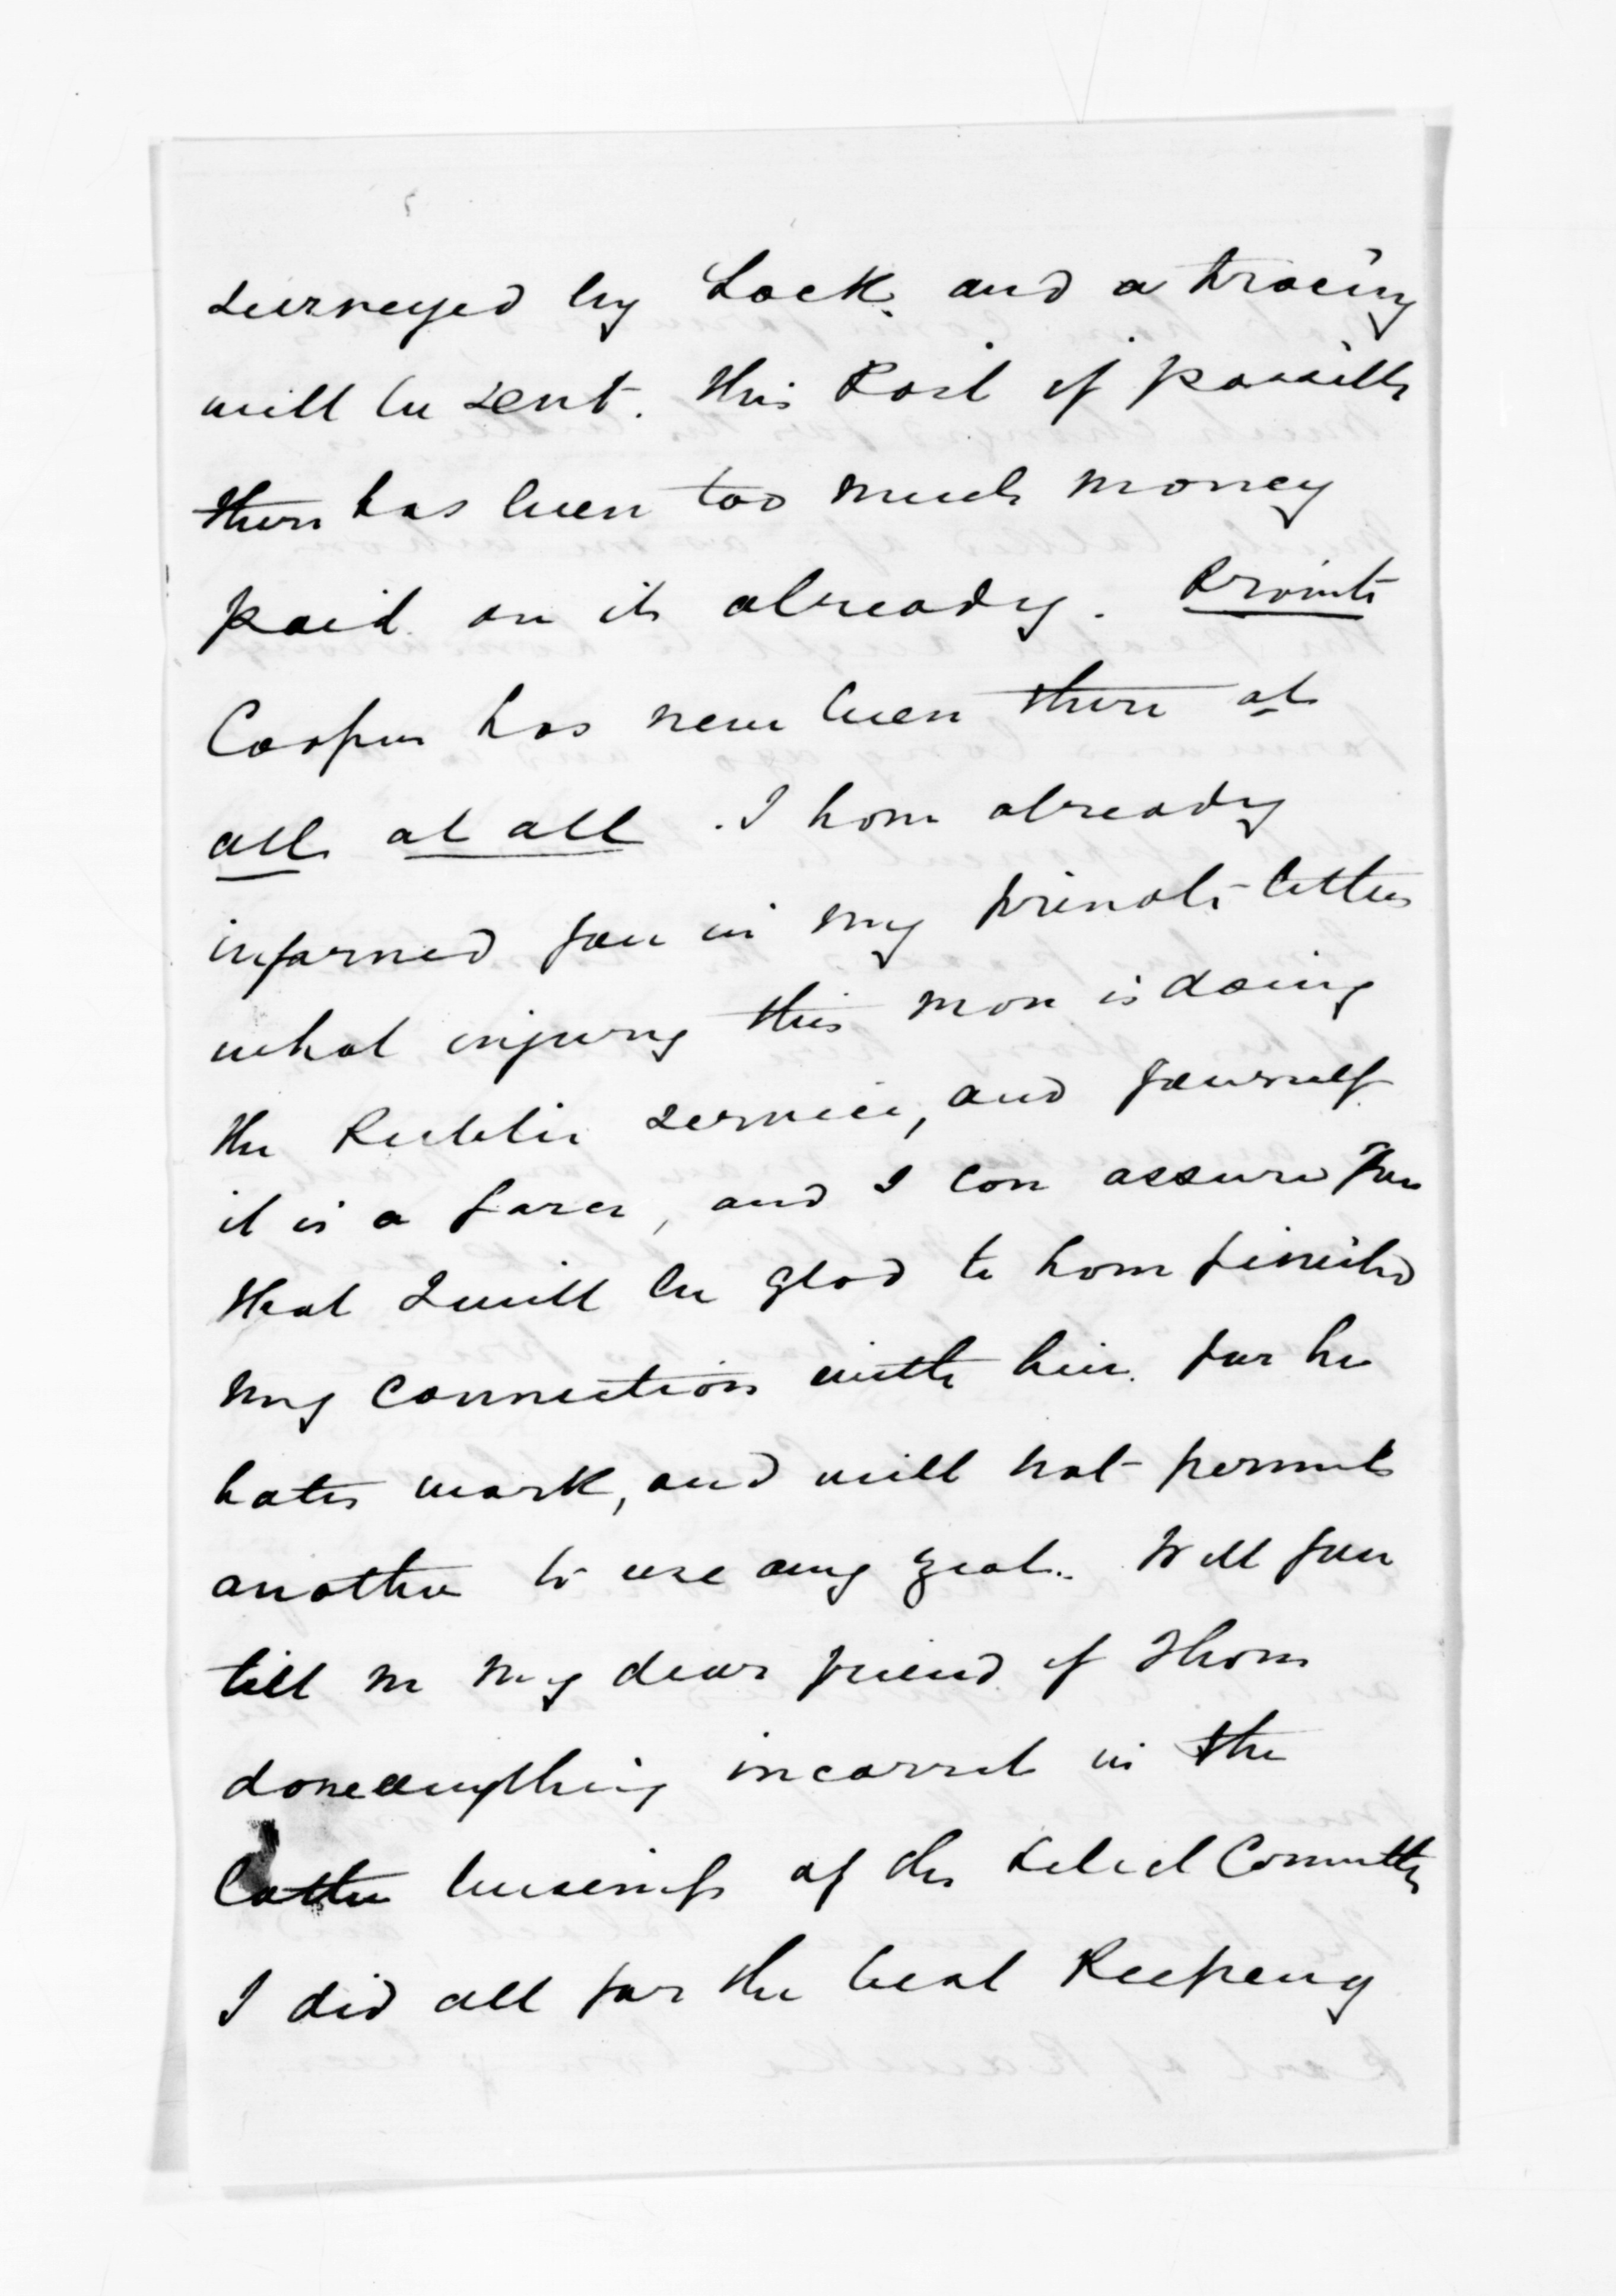 surveyed by Lock. and a tracing
will be sent. this Post if possible
there has been too much money
paid on it already. Private
Cooper has never been there at
all at all . I have already
informed you in my private letters
what injury this man is doing
the Public service, and yourself
it is a farce, and I can assure you
that I will be glad to have finished
my connection with him. for he
hates work, and will not permit
another to use any zeal.. Will you
tell me my dear friend if I have
done anything incorrect in the
Cattle business of the Select Committee
I did all for the best Keeping